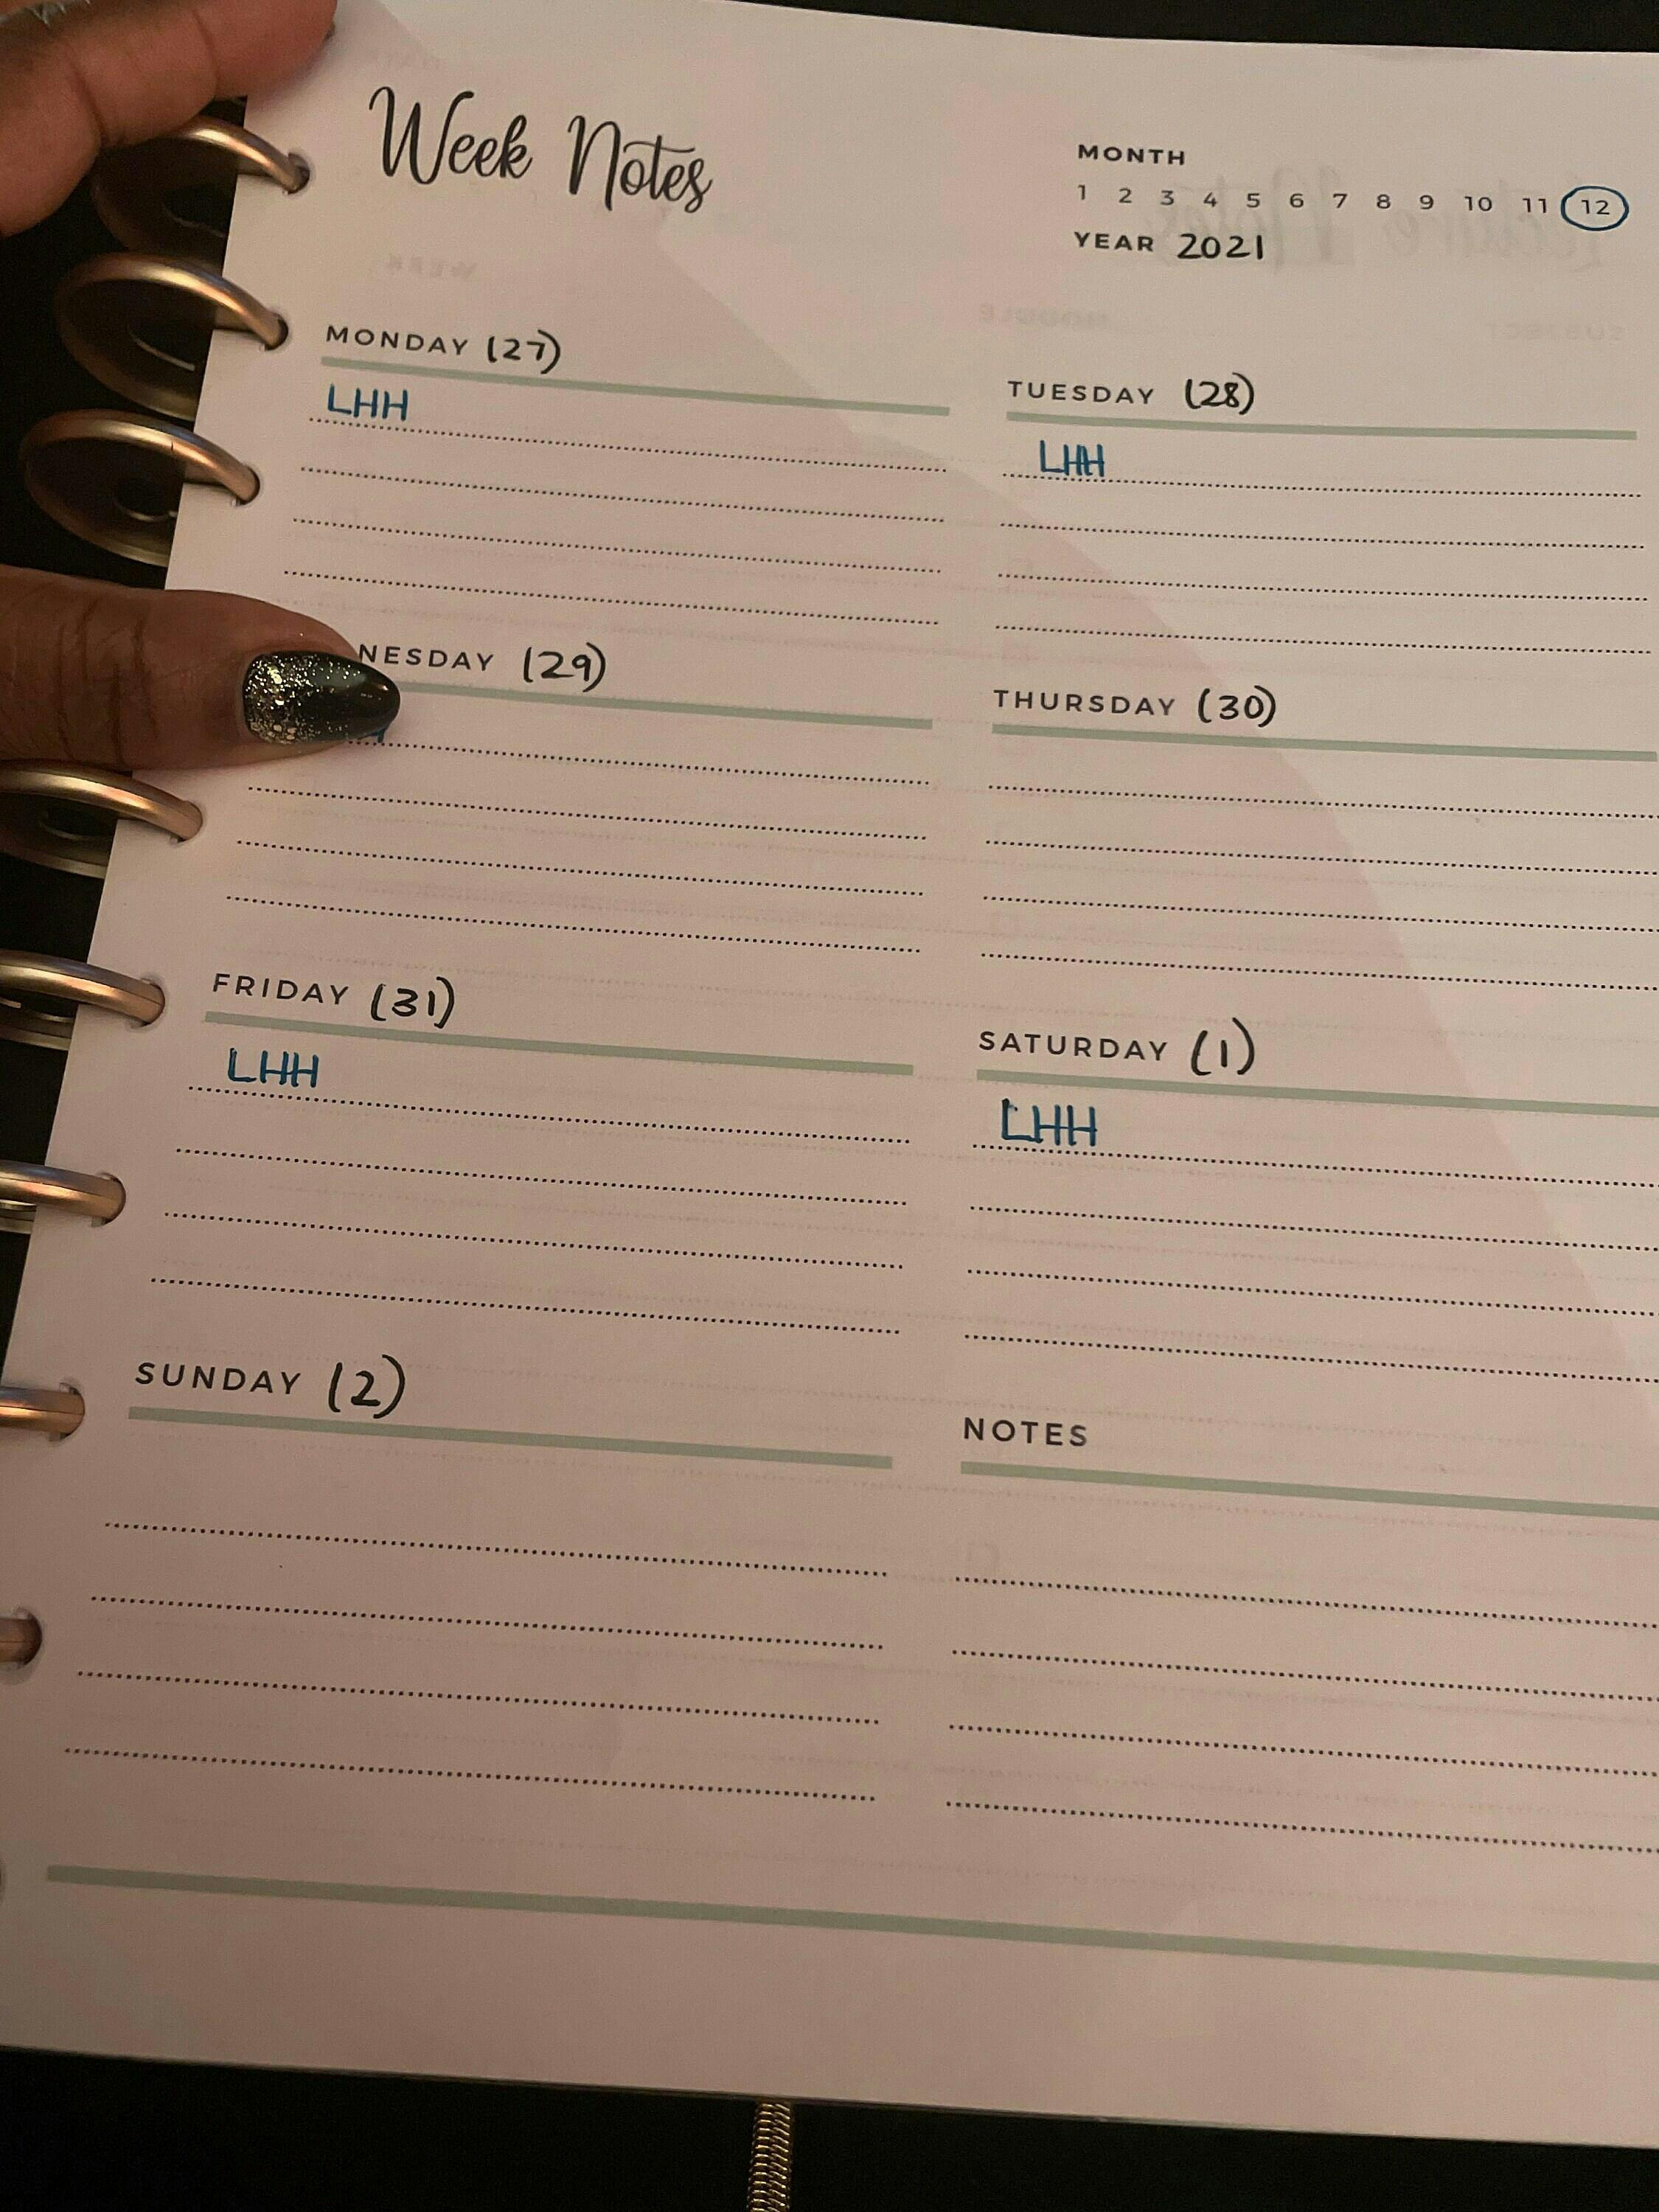 Week Notes
MONTH
1 2 3 4 5 6 7 8 9 10 11 12
YEAR 2021
MONDAY (27)
LHH
TUESDAY (28)
LHH
NESDAY (29)
THURSDAY (30)
FRIDAY (31)
LHH
SATURDAY (1)
LHH
SUNDAY (2)
NOTES